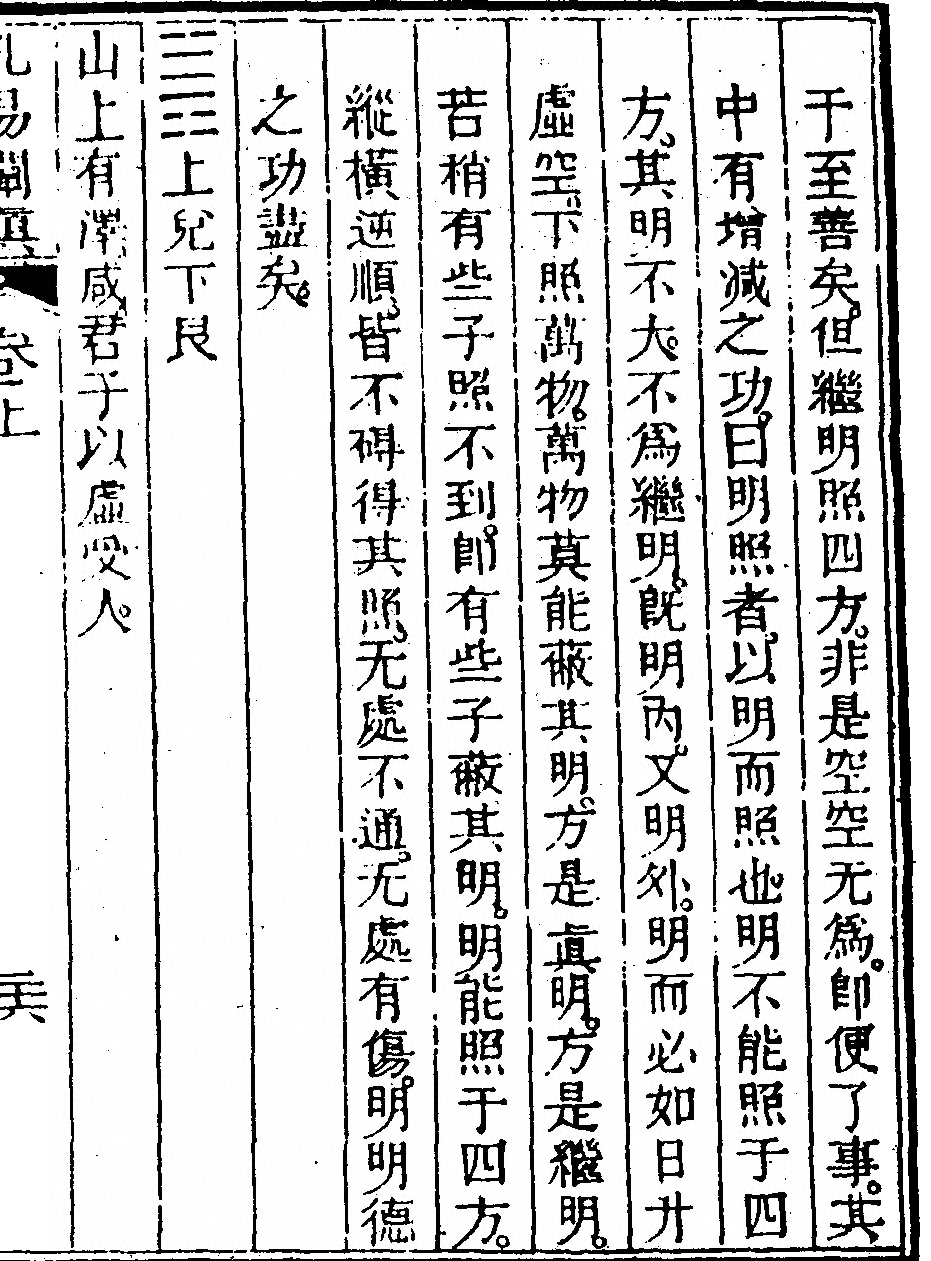 于至善矣。但繼明照四方。非是空空无爲。卽便了事。其
中有增減之功。曰明照者。以明而照也。明不能照于四
方。其明不大。不爲繼明。旣明內。又明外。明而必如日升
虛空。下照萬物。萬物莫能蔽其明。方是眞明。方是繼明。
若稍有些子照不到。卽有些子蔽其明。明能照于四方。
縱橫逆順。皆不碍得其照。无處不通。无處有傷。明明德
之功盡矣。
䷞上兌下艮
山上有澤咸。君子以虛受人。
孔易闡眞 卷上 二六